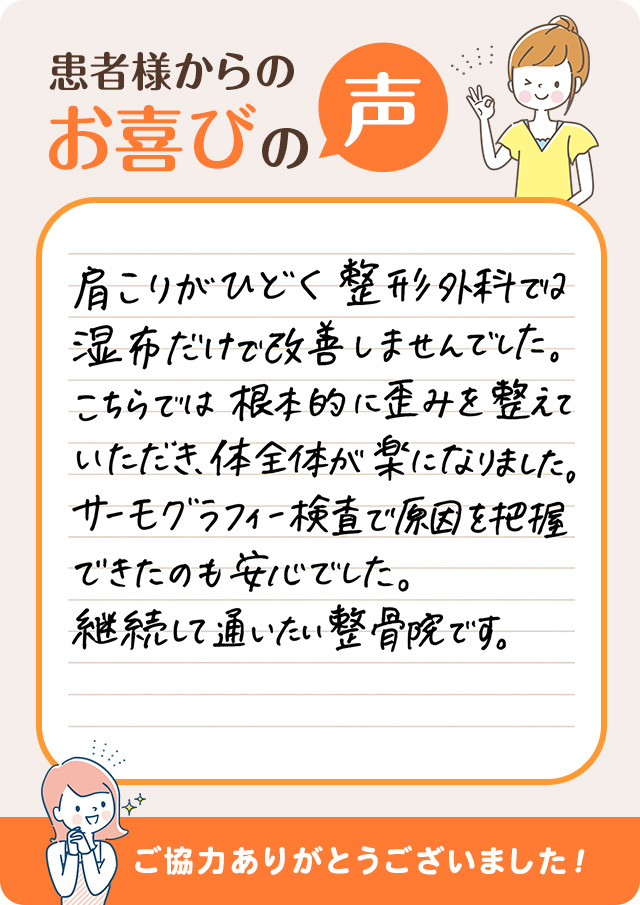 患者様からの
お喜びの声
肩こりがひどく整形外科では
湿布だけで改善しませんでした。
こちらでは根本的に歪みを整えて
いただき、体全体が楽になりました。
サーモグラフィー検査で原因を把握
できたのも安心でした。
継続して通いたい整骨院です。
ご協力ありがとうございました!